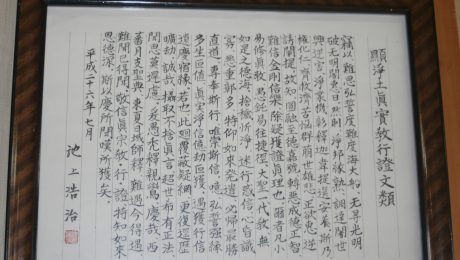 顯淨土眞實教行證文類
竊以難思弘誓度難度海大船无㝵光明
破无明闇惠日然則淨邦緣熟調達闍世
興逆害淨業機彰釋迦韋提選安養斯乃
權化仁齊救濟苦惱群萌世雄悲正欲惠逆
謗闡提故知圓融至德嘉號轉惡成德正智
難信金剛信樂除疑獲證眞理也爾者凡小
易修眞教愚鈍易往捷徑大聖一代教無
如是之德海捨穢忻淨迷行惑信心昏識
寡惡重鄣多特仰如來發遣必歸最勝
直道專奉斯行唯崇斯信噫弘誓強緣
多生叵値眞實淨信億劫叵獲遇獲行信
遠慶宿緣若也此廻覆蔽疑網更復逕歷
曠劫誠哉攝取不捨眞言超世希有正法
聞思莫遲慮爰愚禿釋親鸞慶哉西
蕃月支聖典東夏日域師釋難遇今得遇
難聞已得聞敬信眞宗教行證特知如來
恩德深斯以慶所聞嘆所獲矣
平成二十六年七月
池上浩治